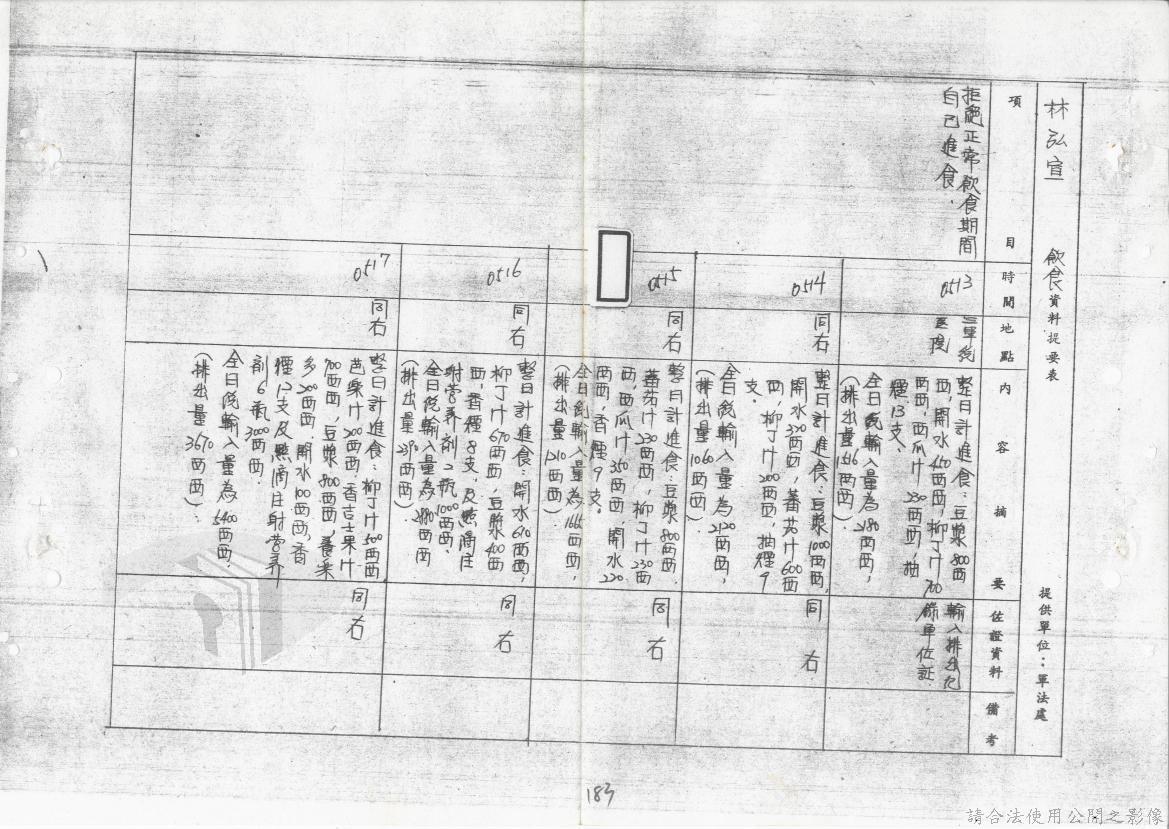 林弘宣 飲食資料提要表
提供單位：軍法處
項目
時間
地點
內容摘要
佐證資料
備考
拒絕正常飲食期間
自己進食．
0513
三軍總
醫院
整日計進食：豆漿800西
西，開水450西西，柳丁汁700
西西，西瓜汁230西西，抽
煙13支、
全日總輸入量為2180西西，
（排出量1516西西）．
輸入排出紀
錄單位証
0514
同右
整日計進食：豆漿1000西西，
開水320西西，蕃茄汁600西
西，柳丁汁200西西，抽煙9
支．
全日總輸入量為2120西西，
（排出量1060西西）．
同右
0515
同右
整日計進食：豆漿800西西．
蕃茄汁230西西，柳丁汁230西
西，西瓜汁350西西，開水220
西西，香煙9支。
全日總輸入量為1665西西，
（排出量1210西西）．
同右
0516
同右
整日計進食：開水610西西，
柳丁汁670西西，豆漿400西
西，香煙8支，及點滴注
射營養劑2瓶1000西西．
全日總輸入量為2880西西
（排出量2390西西）．
同右
0517
同右
整日計進食：柳丁汁500西西
芭樂汁200西西，香吉士果汁
700西西，豆漿800西西，養樂
多200西西，開水100西西，香
煙12支及點滴注射營養
劑6瓶3000西西．
全日總輸入量為5400西西，
（排出量3670西西）．
同右
183
請合法使用公開之影像